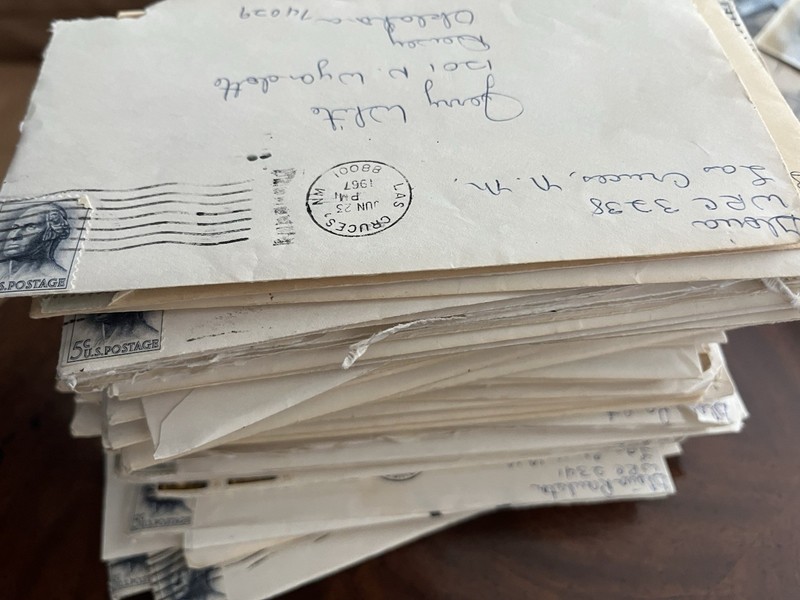 Gloria
WRC 3238
Las Cruces, N.M.
LAS CRUCES, NM
JUN 23
PM
1967
88001
Jerry White
1201 N. Wyandotte
Dewey
Oklahoma 74029
S.POSTAGE
5¢
U.S.POSTAGE
Gloria
5¢
U.S.POSTAGE